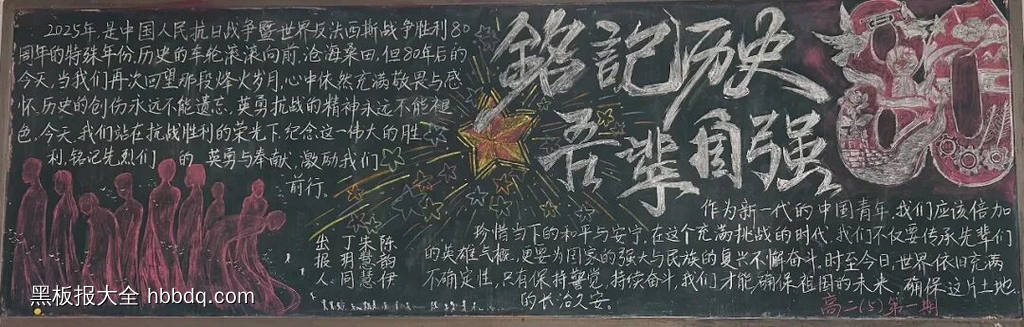 2025年,是中国人民抗日战争暨世界反法西斯战争胜利80
周年的特殊年份,历史的车轮滚滚向前,沧海桑田,但80年后的
今天,当我们再次回望那段烽火岁月,心中依然充满敬畏与感
怀,历史的创伤永远不能遗忘,英勇抗战的精神永远不能褪
色.今天,我们站在抗战胜利的荣光下,纪念这一伟大的胜
利,铭记先烈们的英勇与奉献,激励我们
前行.
銘記历史
吾辈自强
作为新一代的中国青年,我们应该倍加
珍惜当下的和平与安宁,在这个充满挑战的时代,我们不仅要传承先辈们
的英雄气概,更要为国家的强大与民族的复兴不懈奋斗,时至今日,世界依旧充满
不确定性,只有保持警觉,持续奋斗,我们才能确保祖国的未来,确保这片土地
的长治久安.
高二(5)第一期
陈韵伊
朱慧慧
丁玥同
出报人
黑板报大全 hbbdq.com